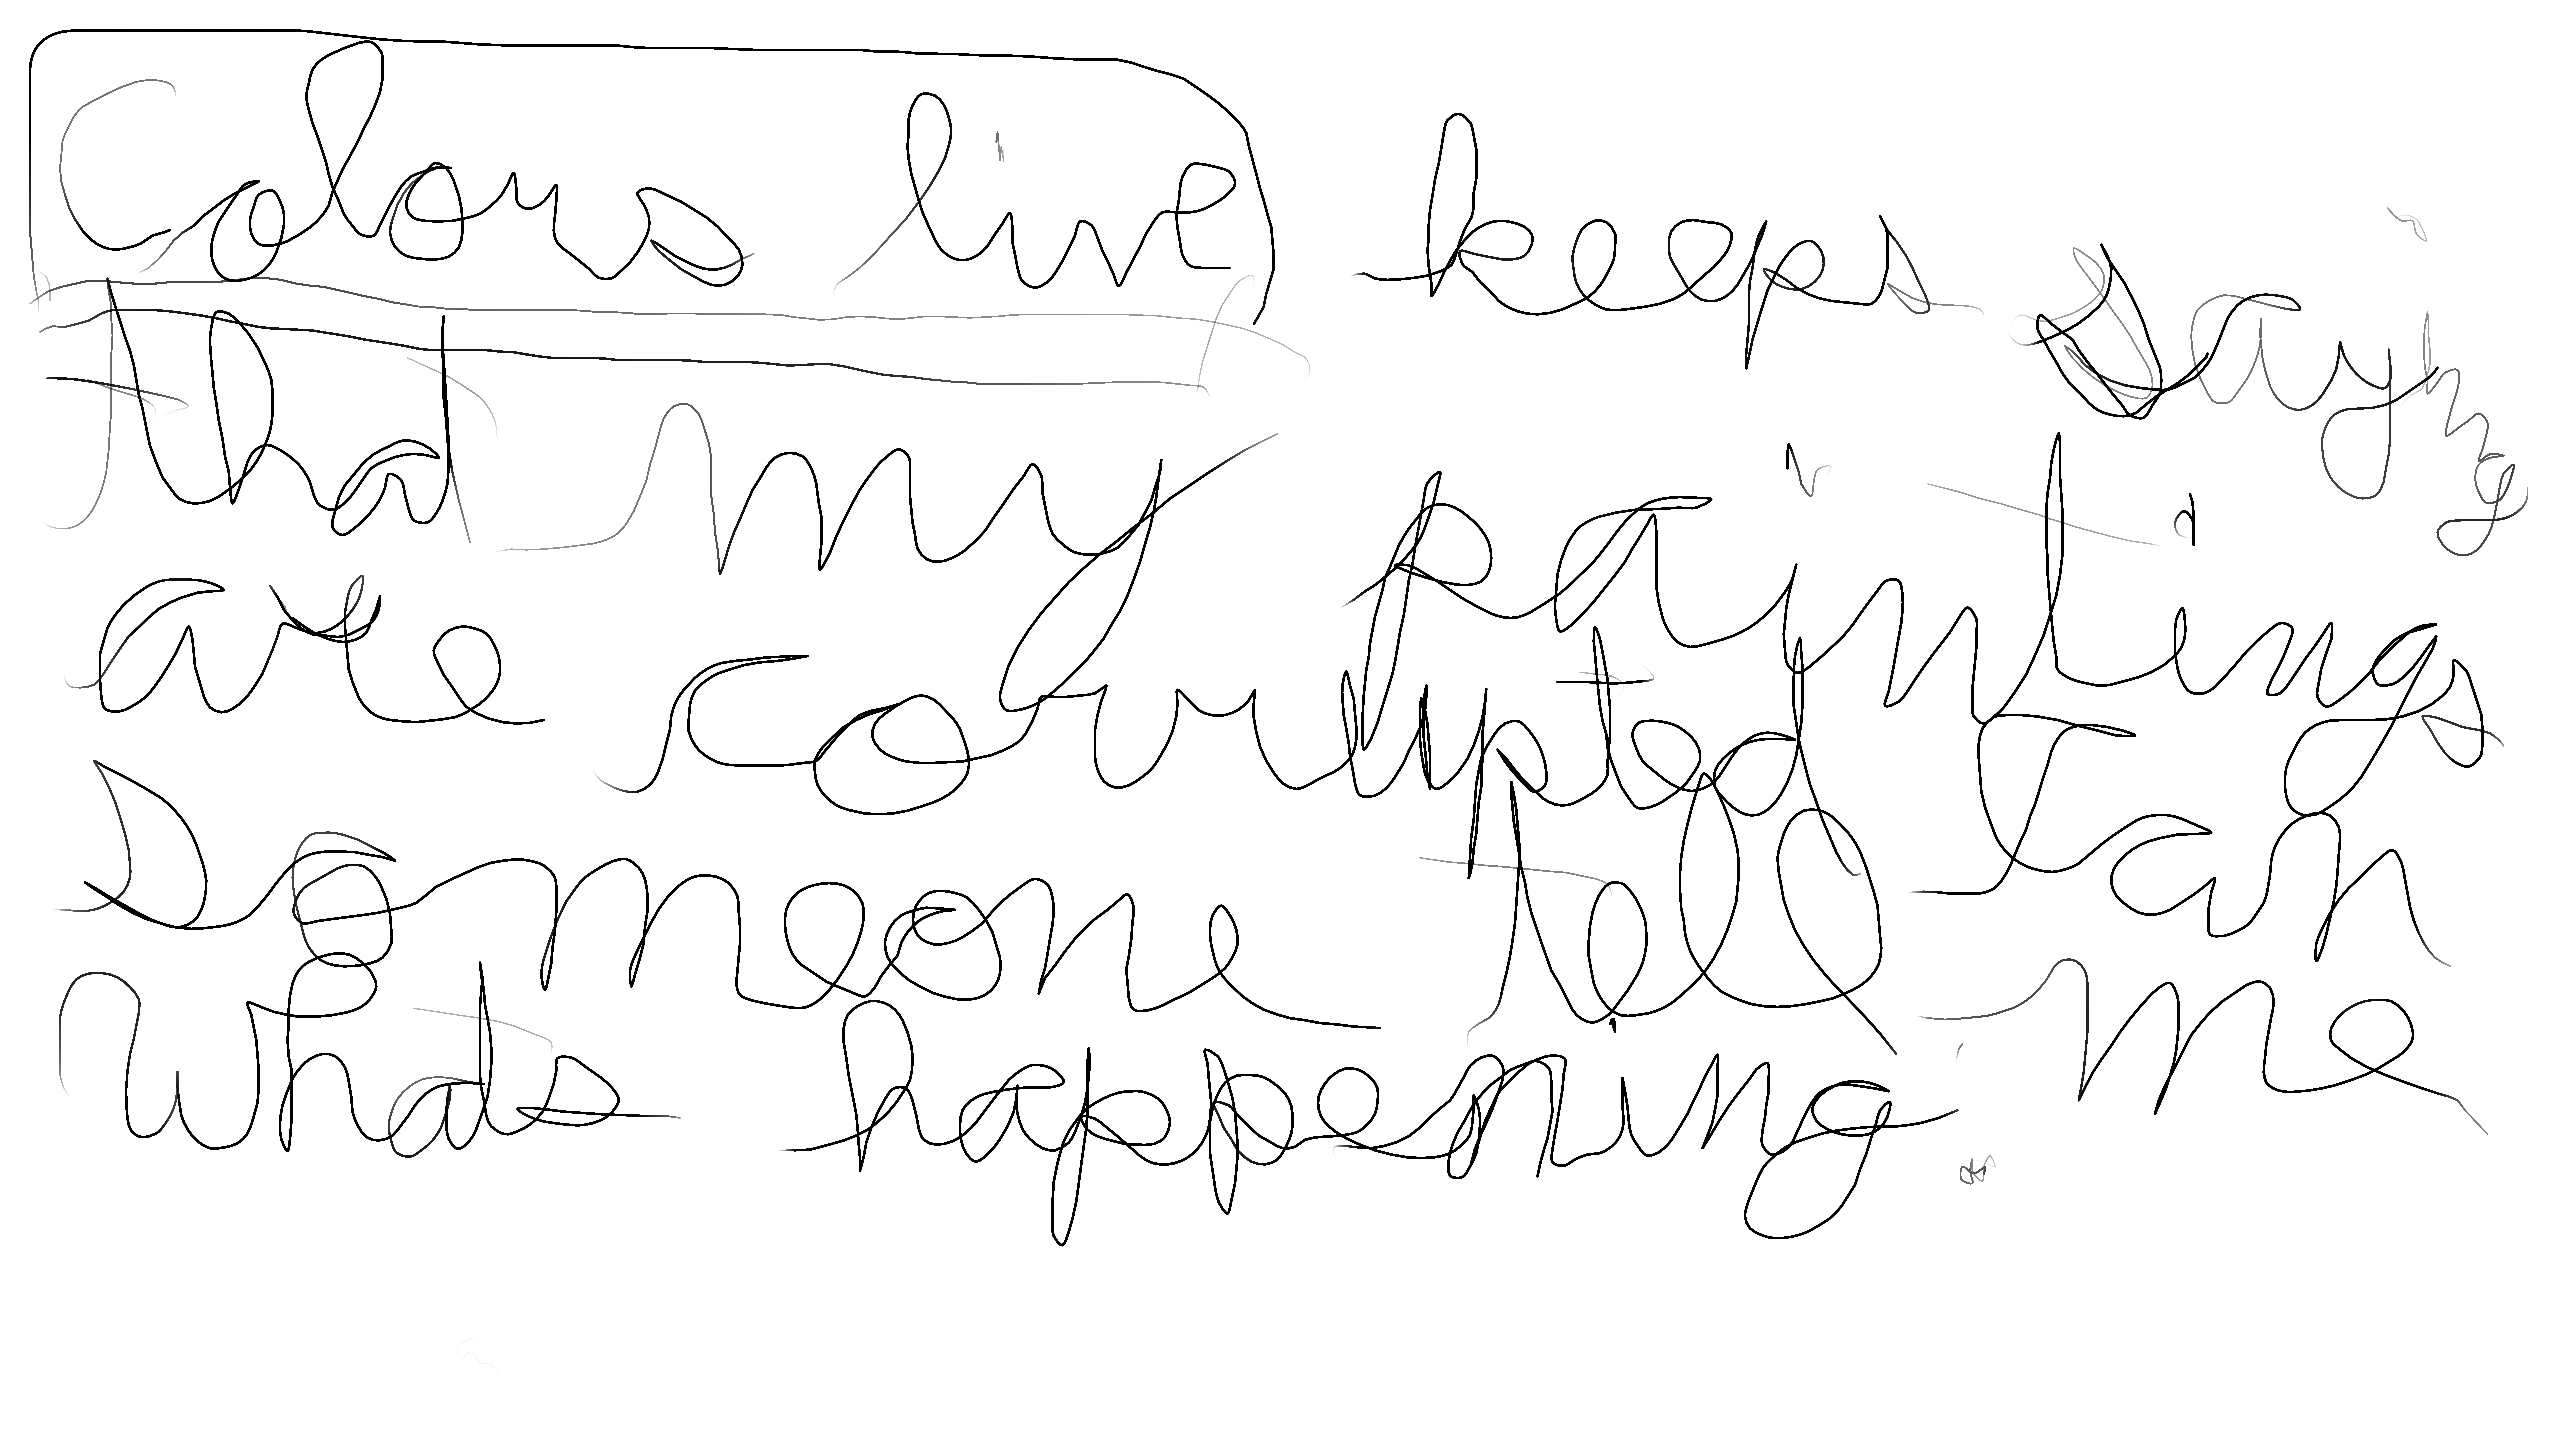 Colours live keeps saying
that my paintings
are corrupted Can
someone tell me
whats happening.